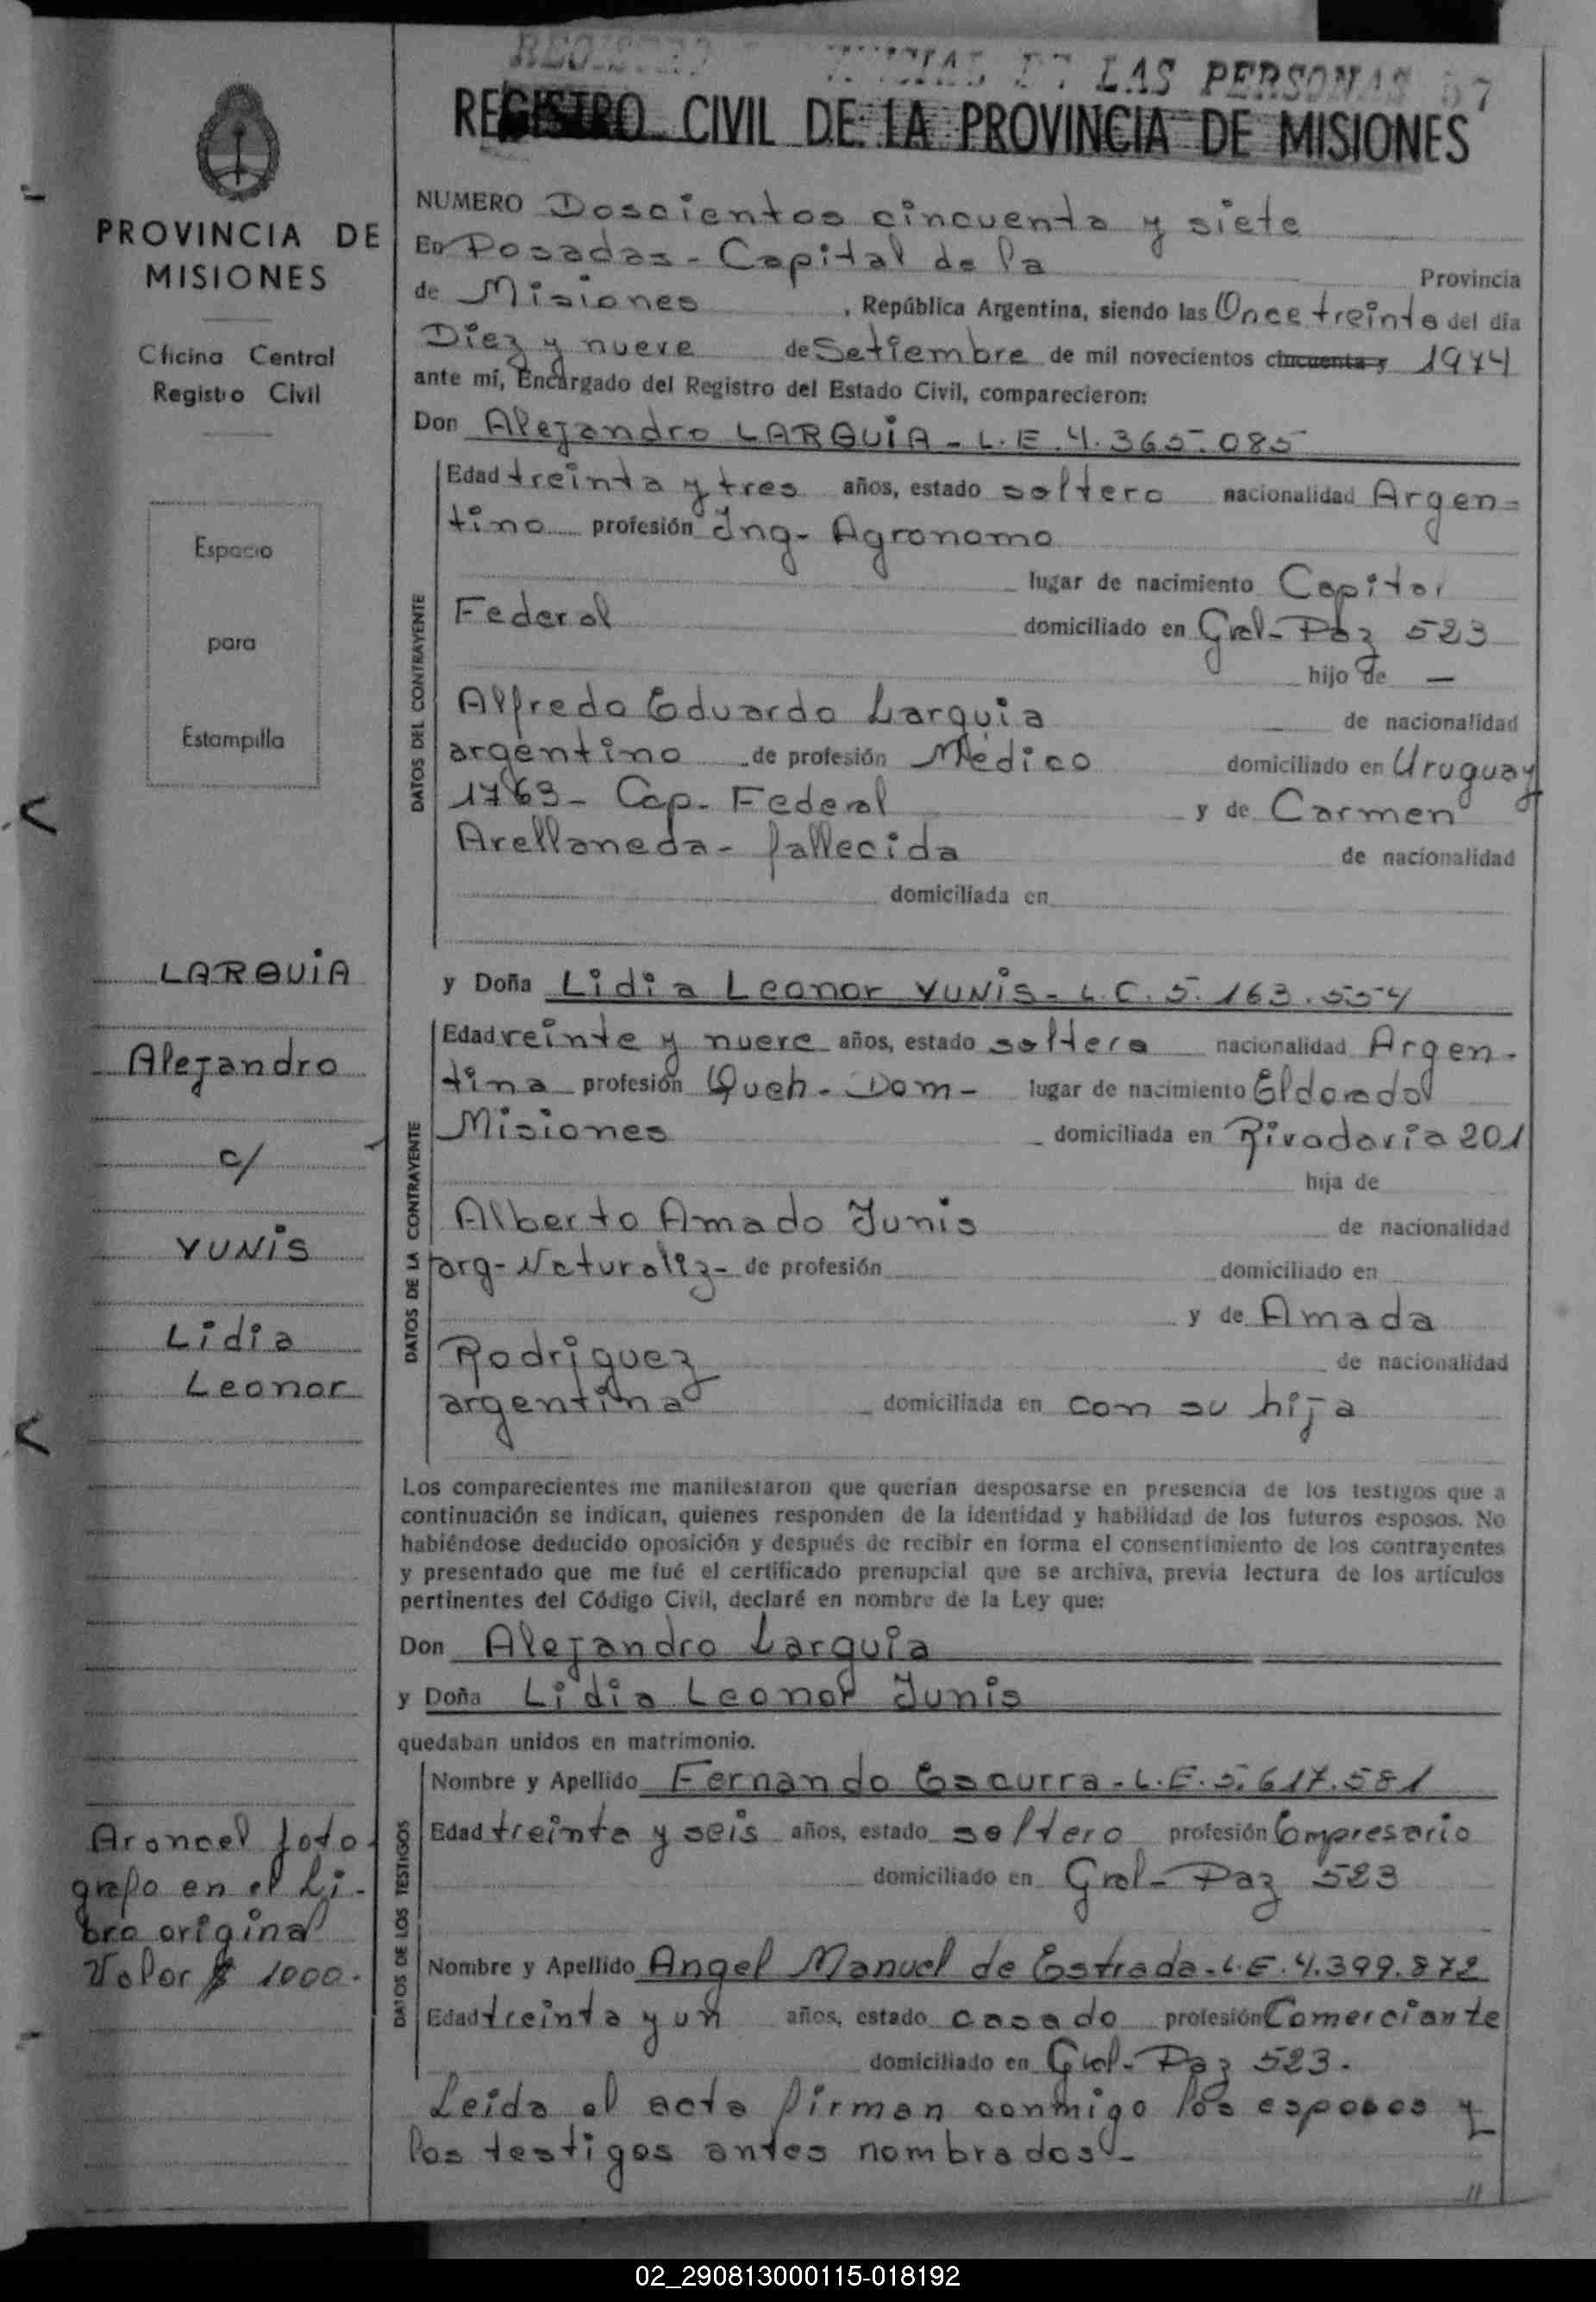 LAS PERSONAS 57
REGISTRO CIVIL DE LA PROVINCIA DE MISIONES
PROVINCIA DE
MISIONES
Oficina Central
Registro Civil
Espacio
para
Estampilla
LARQUiA
Alejandro
c/
YUNiS
Lidia
Leonor
Arancel foto
grafo en el Li-
bro original
Valor $ 1000.
NUMERO Doscientos cincuenta y siete
En Posadas - Capital de la Provincia
de Misiones , República Argentina, siendo las Once treinta del día
Diez y nueve de Setiembre de mil novecientos cincuenta y 1974
ante mí, Encargado del Registro del Estado Civil, comparecieron:
Don Alejandro LARQUiA - L.E. 4.365.085
DATOS DEL CONTRAYENTE
Edad treinta y tres años, estado soltero nacionalidad Argen-
tino profesión Ing- Agronomo
lugar de nacimiento Capital
Federal domiciliado en Gral- Paz 523
hijo de —
Alfredo Eduardo Larquia de nacionalidad
argentino de profesión Médico domiciliado en Uruguay
1763- Cap- Federal y de Carmen
Avellaneda- fallecida de nacionalidad
domiciliada en
y Doña Lidia Leonor YUNiS- L.C. 5.163.554
DATOS DE LA CONTRAYENTE
Edad veinte y nueve años, estado soltera nacionalidad Argen-
tina profesión Queh- Dom- lugar de nacimiento Eldorado
Misiones domiciliada en Rivadavia 201
hija de
Alberto Amado Yunis de nacionalidad
arg- Naturaliz- de profesión domiciliado en
y de Amada
Rodriguez de nacionalidad
argentina domiciliada en con su hija
Los comparecientes me manifestaron que querían desposarse en presencia de los testigos que a
continuación se indican, quienes responden de la identidad y habilidad de los futuros esposos. No
habiéndose deducido oposición y después de recibir en forma el consentimiento de los contrayentes
y presentado que me fué el certificado prenupcial que se archiva, previa lectura de los artículos
pertinentes del Código Civil, declaré en nombre de la Ley que:
Don Alejandro Larquia
y Doña Lidia Leonor Yunis
quedaban unidos en matrimonio.
DATOS DE LOS TESTIGOS
Nombre y Apellido Fernando Escurra- L.E. 5.617.581
Edad treinta y seis años, estado soltero profesión Empresario
domiciliado en Gral- Paz 523
Nombre y Apellido Angel Manuel de Estrada- L.E. 4.399.872
Edad treinta y un años, estado casado profesión Comerciante
domiciliado en Gral- Paz 523.
Leida el acta firman conmigo los esposos y
los testigos antes nombrados-
02_290813000115-018192